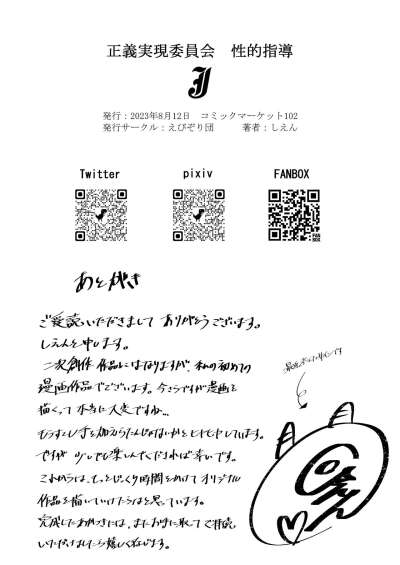 正義実現委員会　性的指導
J
発行：2023年8月12日　コミックマーケット102
発行サークル：えびぞり団　　著者：しえん
Twitter　pixiv　FANBOX
あとがき
ご愛読いただきまして ありがとうございます。
しえんと申します。
二次創作作品にはなりますが、私の初めての
漫画作品でございます。今さらですが漫画を
描くって本当に大変ですね…
ヒヤヒヤしています。
ですが 少しでも楽しんでくだされば幸いです。
これからは、もっとじっくり時間をかけて オリジナル
作品を描いていけたらなと思っています。
完成したあかつきには、またお手に取って ご拝読
いただけましたら嬉しく存じます。